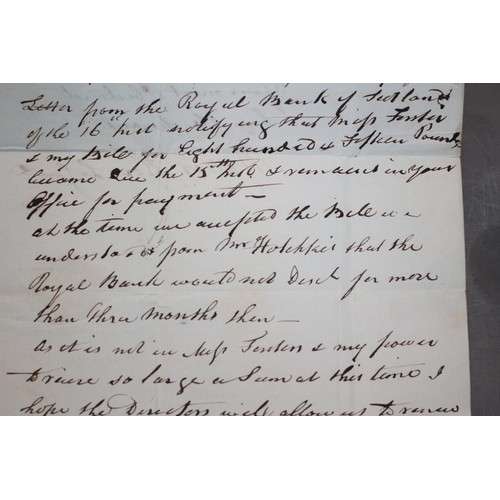 Letter from the Royal Bank of Scotland
of the 16th inst notifying that Miss Forster
& my Bill for Eight hundred & fifteen Pounds
became due the 15th inst & remains in your
Office for payment—
at the time we accepted the Bill we
understood from Mr Hotchkis that the
Royal Bank would not Disct for more
than three months then—
as it is not in Miss Forsters & my power
to raise so large a Sum at this time I
hope the Directors will allow us to renew